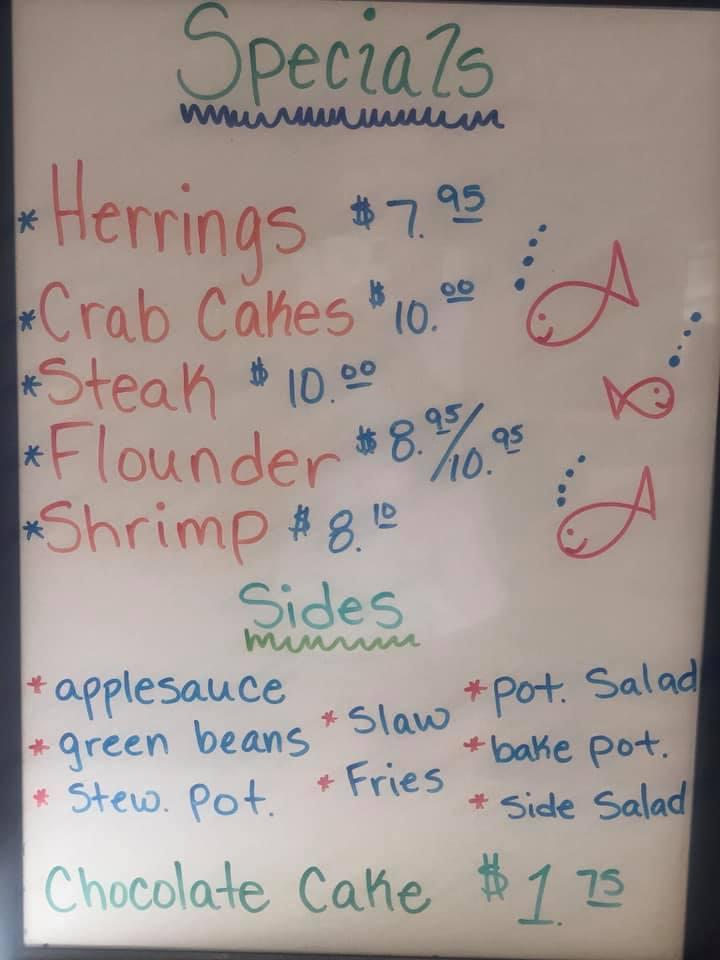 Specials
* Herrings $ 7.95
* Crab Cakes $ 10.00
* Steak $ 10.00
* Flounder $ 8.95/10.95
* Shrimp $ 8.10
Sides
* applesauce
* green beans
* Stew. Pot.
* Slaw
* Fries
* Pot. Salad
* bake pot.
* Side Salad
Chocolate Cake $ 1.75